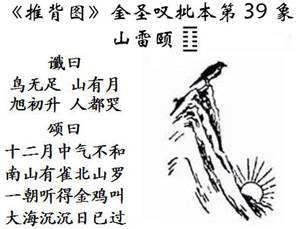 《推背图》金圣叹批本第39象
山雷颐 ䷚
谶曰
鸟无足 山有月
旭初升 人都哭
颂曰
十二月中气不和
南山有雀北山罗
一朝听得金鸡叫
大海沉沉日已过